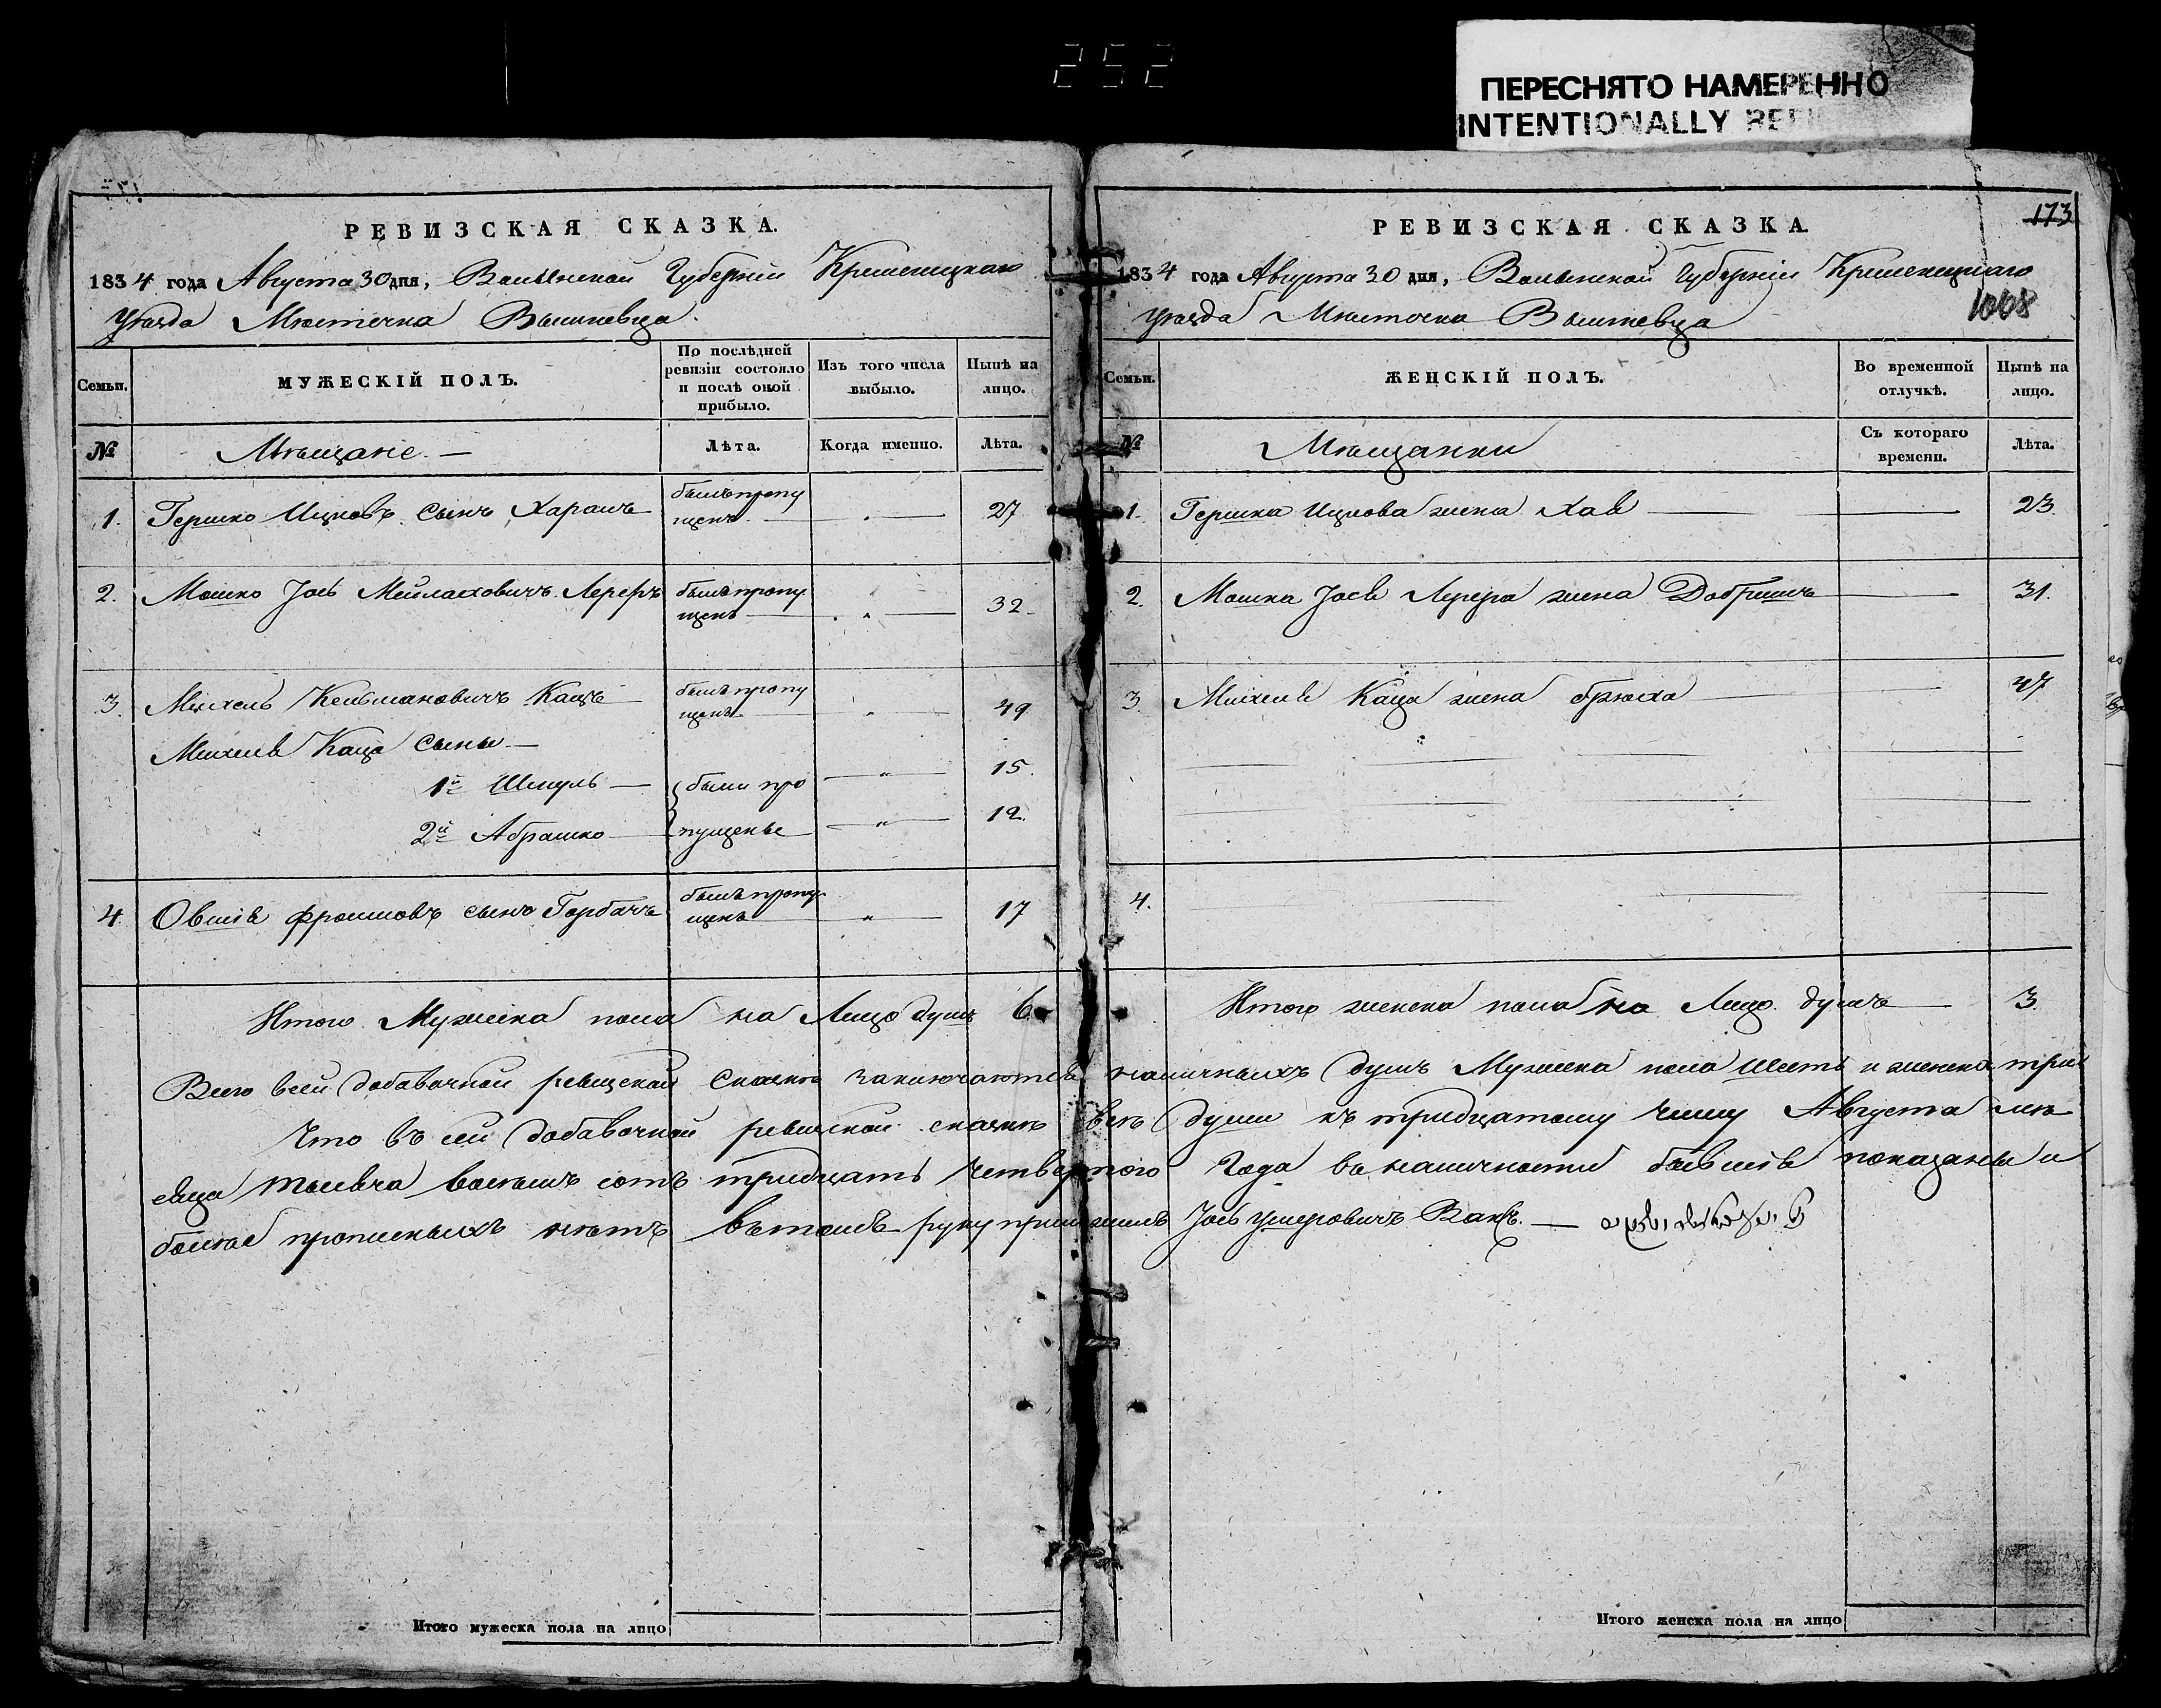 252
ПЕРЕСНЯТО НАМЕРЕННО
INTENTIONALLY
РЕВИЗСКАЯ СКАЗКА.
1834 года Августа 30 дня, Волынской Губерніи Кременецкаго
Уѣзда Мѣстечка Вышневца.
Семьи. МУЖЕСКІЙ ПОЛЪ. По послѣдней ревизіи состояло и послѣ оной прибыло. Изъ того числа выбыло. Нынѣ на лицо.
№ Мѣщане. — Лѣта. Когда именно. Лѣта.
1. Гершко Ицковъ сынъ Харашъ былъ пропущенъ — 27
2. Мошко Іось Мейлаховичъ Лереръ былъ пропущенъ — 32.
3. Михель Кельмановичъ Кацъ былъ пропущенъ — 49
Михеля Каца сыны —
1й Шмуль — были про — 15.
2й Абрашко — пущены — 12.
4. Овшія Фроимовъ сынъ Горбачъ былъ пропущенъ — 17
Итого Мужеска пола на Лицо душъ 6
173
РЕВИЗСКАЯ СКАЗКА.
1834 года Августа 30 дня, Волынской Губерніи Кременецкаго
Уѣзда Мѣстечка Вышневца
1008
Семьи. ЖЕНСКІЙ ПОЛЪ. Во временной отлучкѣ. Нынѣ на лицо.
№ Мѣщанки Съ котораго времени. Лѣта.
1. Гершка Ицкова жена Хая — 23.
2. Мошка Іося Лерера жена Добришъ — 31.
3. Михеля Каца жена Брюха — 47
4.
Итого женска пола на Лицо душъ — 3.
Всего всей добавочной ревизской сказкѣ заключается наличныхъ душъ Мужеска пола шесть и женска три
Что въ сей добавочной ревизской сказкѣ всѣ души къ тридцатому числу Августа мѣ
сяца тысяча восемь сотъ тридцать четвертого Года въ наличности бывшія показаны и
болѣе прописныхъ нѣтъ въ томъ руку приложилъ Іось Ушеровичъ Вакъ. —
Итого мужеска пола на лицо
Итого женска пола на лицо